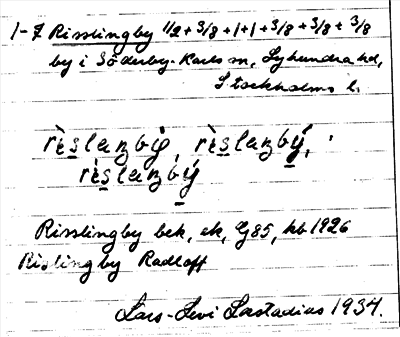 1-7 Risslingby 1/2 + 3/8 + 1 + 1 + 3/8 + 3/8 + 3/8
by i Söderby-Karls sn, Lyhundra hd,
Stockholms l.
rèslaŋbý, rèslaŋbý,
rèslaŋbý
Risslingby bek, ek, G85, kb 1926
Rislingby Radloff
Lars-Levi Læstadius 1934.